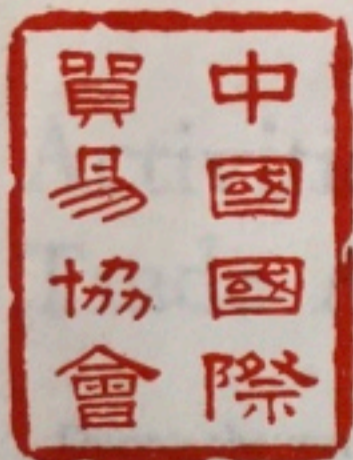 中國國際
貿易協會